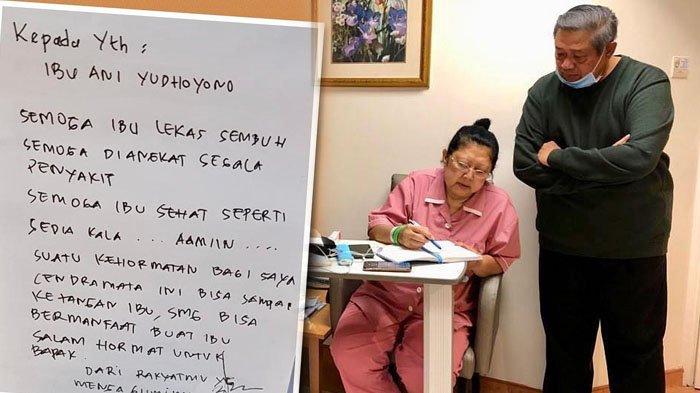 Kepada Yth :
IBU ANI YUDHOYONO
SEMOGA IBU LEKAS SEMBUH
SEMOGA DIANGKAT SEGALA
PENYAKIT
SEMOGA IBU SEHAT SEPERTI
SEDIA KALA ... AAMIIN ....
SUATU KEHORMATAN BAGI SAYA
CENDRAMATA INI BISA SAMPAI
KETANGAN IBU, SMG BISA
BERMANFAAT BUAT IBU
SALAM HORMAT UNTUK
BAPAK.
DARI RAKYATMU